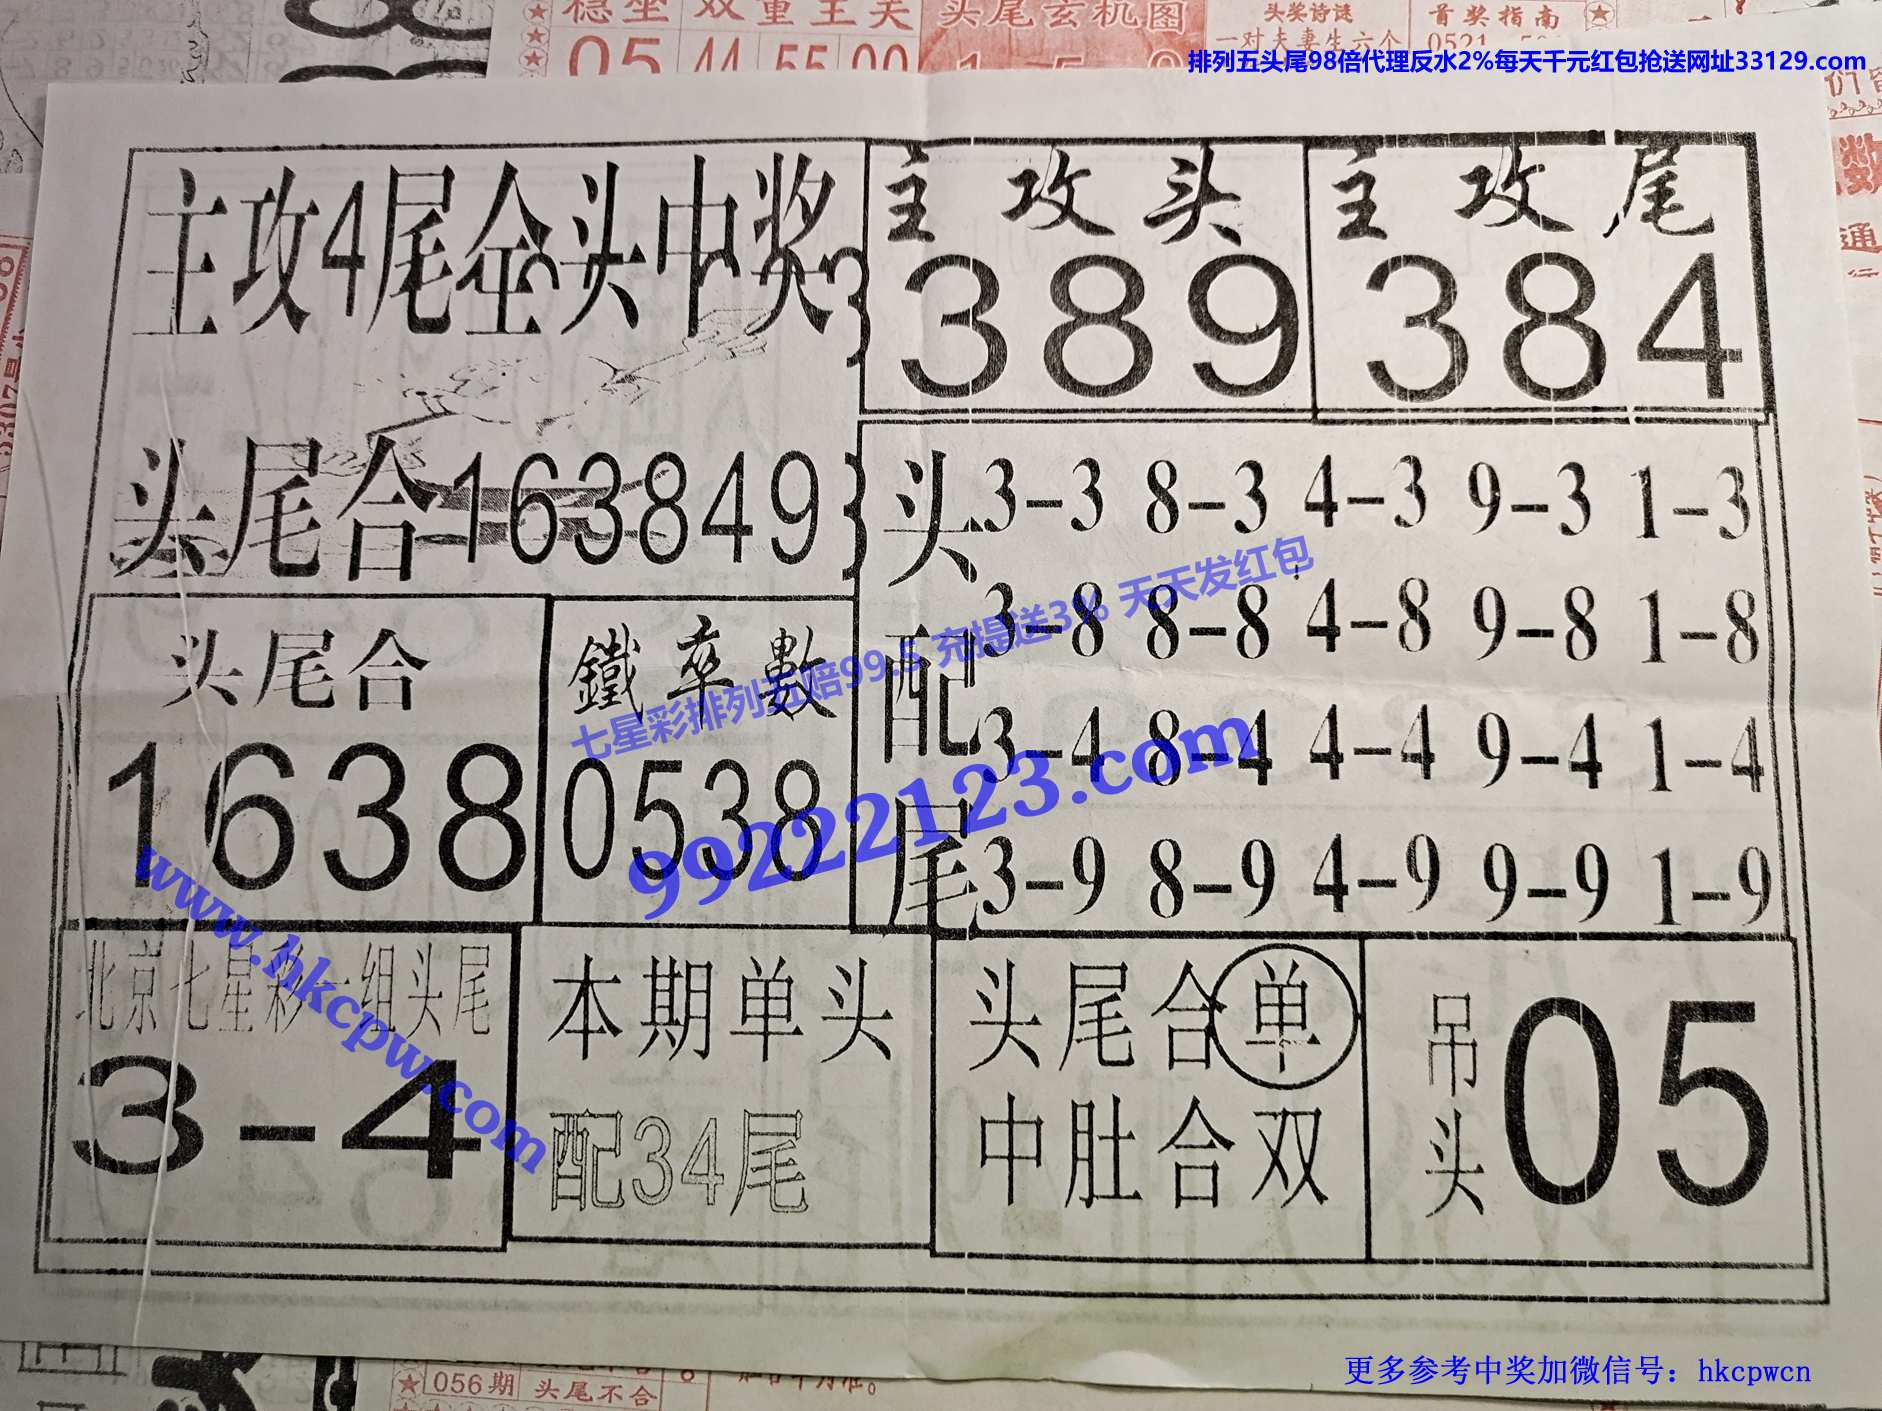 稳坐 双重王关
05 44 55 00
头尾玄机图
头奖诗谜
一对夫妻生六个
首奖指南
0521
排列五头尾98倍代理反水2%每天千元红包抢送网址33129.com
主攻4尾全头中奖
主攻头
389
主攻尾
384
头尾合163849
头配尾
3-3 8-3 4-3 9-3 1-3
3-8 8-8 4-8 9-8 1-8
3-4 8-4 4-4 9-4 1-4
3-9 8-9 4-9 9-9 1-9
头尾合
1638
鐵率數
0538
七星彩排列五赔99.5 充提送3% 天天发红包
99222123.com
www.hkcpw.com
北京七星彩一组头尾
3-4
本期单头
配34尾
头尾合单
中肚合双
吊头
05
056期 头尾不合
更多参考中奖加微信号：hkcpwcn